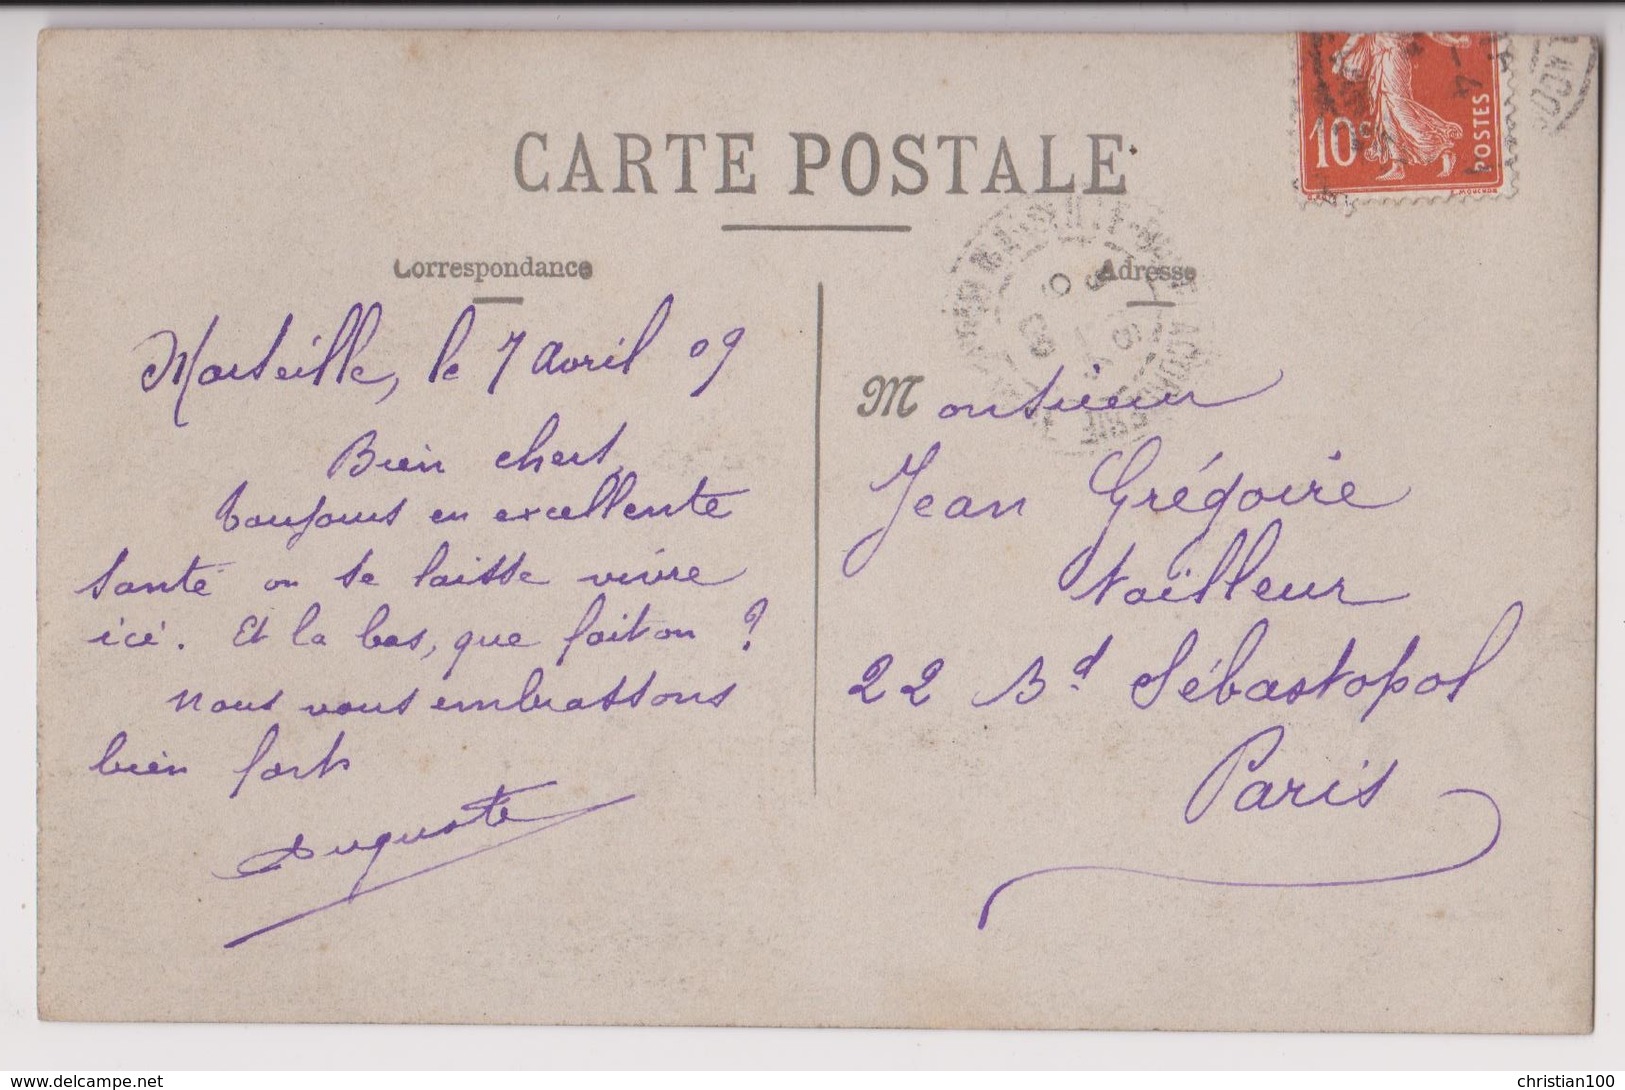 CARTE POSTALE
Correspondance
Adresse
10c
POSTES
E. MOUCHON
Marseille, le 7 avril 09
Bien chers,
toujours en excellente
santé on se laisse vivre
ici. Et là bas, que fait on ?
nous vous embrassons
bien forts
Auguste
Monsieur
Jean Grégoire
tailleur
22 Bd Sébastopol
Paris
delcampe.net
christian100